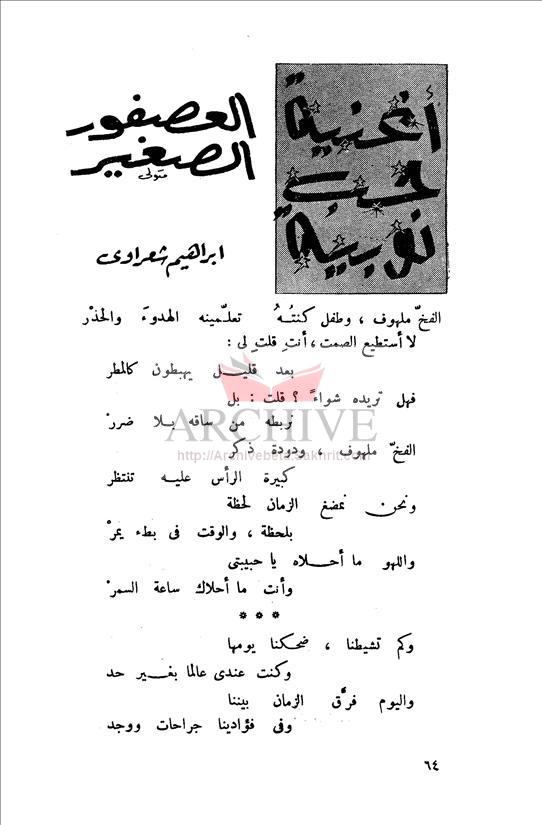 أغنية
حب
نوبية
العصفور
الصغير
متولى
ابراهيم شعراوى
الفخّ ملهوف ، وطفل كنتُهُ تعلّمينه الهدوءَ والحذرْ
لا أستطيع الصمت ، أنتِ قلتِ لى :
بعد قليل يهبطون كالمطر
فهل تريده شواءً ؟ قلت : بل
نربطه من ساقه بلا ضررْ
الفخّ ملهوف ، ودودة ذكر
كبيرة الرأس عليه تنتظر
ونحن نمضغ الزمان لحظة
بلحظة ، والوقت فى بطء يمرْ
واللهو ما أحلاه يا حبيبتى
وأنت ما أحلاك ساعة السمرْ
* * *
وكم تشيطنا ، ضحكنا يومها
وكنت عندى عالما بغير حد
واليوم فرَّق الزمان بيننا
وفى فؤادينا جراحات ووجد
٦٤
ARCHIVE
http://Archivebeta.Sakhrit.com